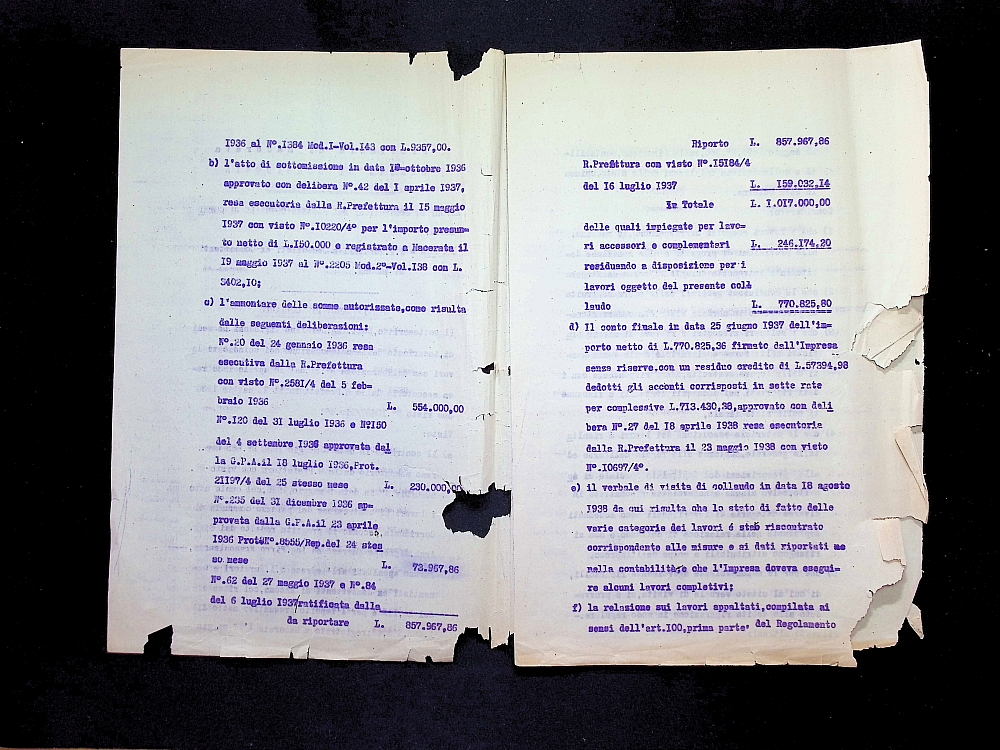 1936 al N°.1384 Mod.I-Vol.143 con L.9357,00.
b) l'atto di sottomissione in data 18=ottobre 1936
approvato con delibera N°.42 del I aprile 1937,
resa esecutoria dalla R.Prefettura il 15 maggio
1937 con visto N°.10220/4° per l'importo presun=
to netto di L.150.000 e registrato a Macerata il
19 maggio 1937 al N°.2205 Mod.2°-Vol.138 con L.
3402,10;
c) l'ammontare delle somme autorizzate,come risulta
dalle seguenti deliberazioni:
N°.20 del 24 gennaio 1936 resa
esecutiva dalla R.Prefettura
con visto N°.2581/4 del 5 feb=
braio 1936 L. 554.000,00
N°.120 del 31 luglio 1936 e N°150
del 4 settembre 1936 approvata dal
la G.P.A.il 18 luglio 1936,Prot.
21197/4 del 25 stesso mese L. 230.000,00
N°.205 del 31 dicembre 1936 ap=
provata dalla G.P.A.il 23 aprile
1936 Prot.N°.8555/Rep.del 24 stes
so mese L. 73.967,86
N°.62 del 27 maggio 1937 e N°.84
del 6 luglio 1937 ratificata dalla
da riportare L. 857.967,86
Riporto L. 857.967,86
R.Prefettura con visto N°.15184/4
del 16 luglio 1937 L. 159.032,14
In Totale L. 1.017.000,00
delle quali impiegate per lavo=
ri accessori e complementari L. 246.174,20
residuando a disposizione per i
lavori oggetto del presente col=
laudo L. 770.825,80
d) Il conto finale in data 25 giugno 1937 dell'im=
porto netto di L.770.825,36 firmato dall'Impresa
senza riserve.con un residuo credito di L.57394,98
dedotti gli acconti corrisposti in sette rate
per complessive L.713.430,38,approvato con deli
bera N°.27 del 18 aprile 1938 resa esecutoria
dalla R.Prefettura il 23 maggio 1938 con visto
N°.10697/4°.
e) il verbale di visita di collaudo in data 18 agosto
1938 da cui risulta che lo stato di fatto delle
varie categorie dei lavori é stato riscontrato
corrispondente alle misure e ai dati riportati
nella contabilità e che l'Impresa doveva esegui=
re alcuni lavori completivi;
f) la relazione sui lavori appaltati,compilata ai
sensi dell'art.100,prima parte, del Regolamento